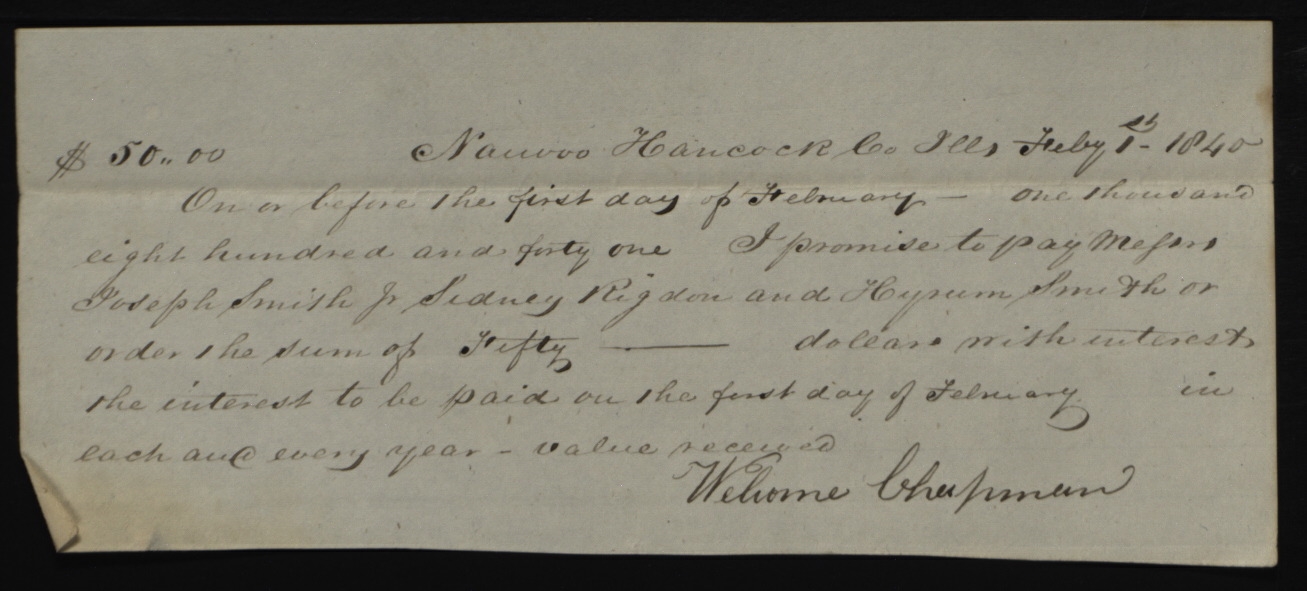 $ 50.. 00 Nauvoo Hancock Co Ills Feby 1st- 1840
On or before the first day of February — one thousand
eight hundred and forty one I promise to pay Messrs
Joseph Smith Jr Sidney Rigdon and Hyrum Smith or
order the sum of Fifty ——— dollars with interest
the interest to be paid on the first day of February in
each and every year - value received
Welcome Chapman